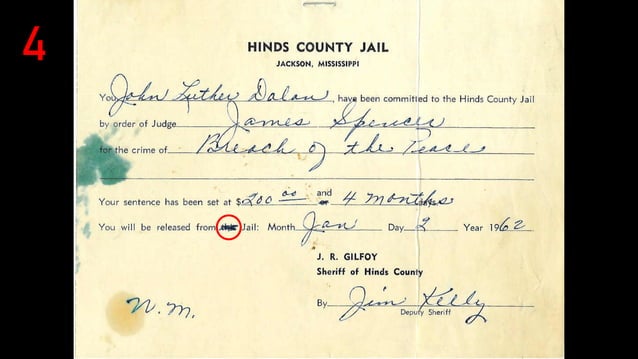 4
HINDS COUNTY JAIL
JACKSON, MISSISSIPPI
You John Luther Dolan, have been committed to the Hinds County Jail
by order of Judge James Spencer
for the crime of Breach of the Peace
Your sentence has been set at $200 00 and 4 months
You will be released from Jail: Month Jan Day 2 Year 1962
J. R. GILFOY
Sheriff of Hinds County
By Jim Kelly
Deputy Sheriff
N.M.